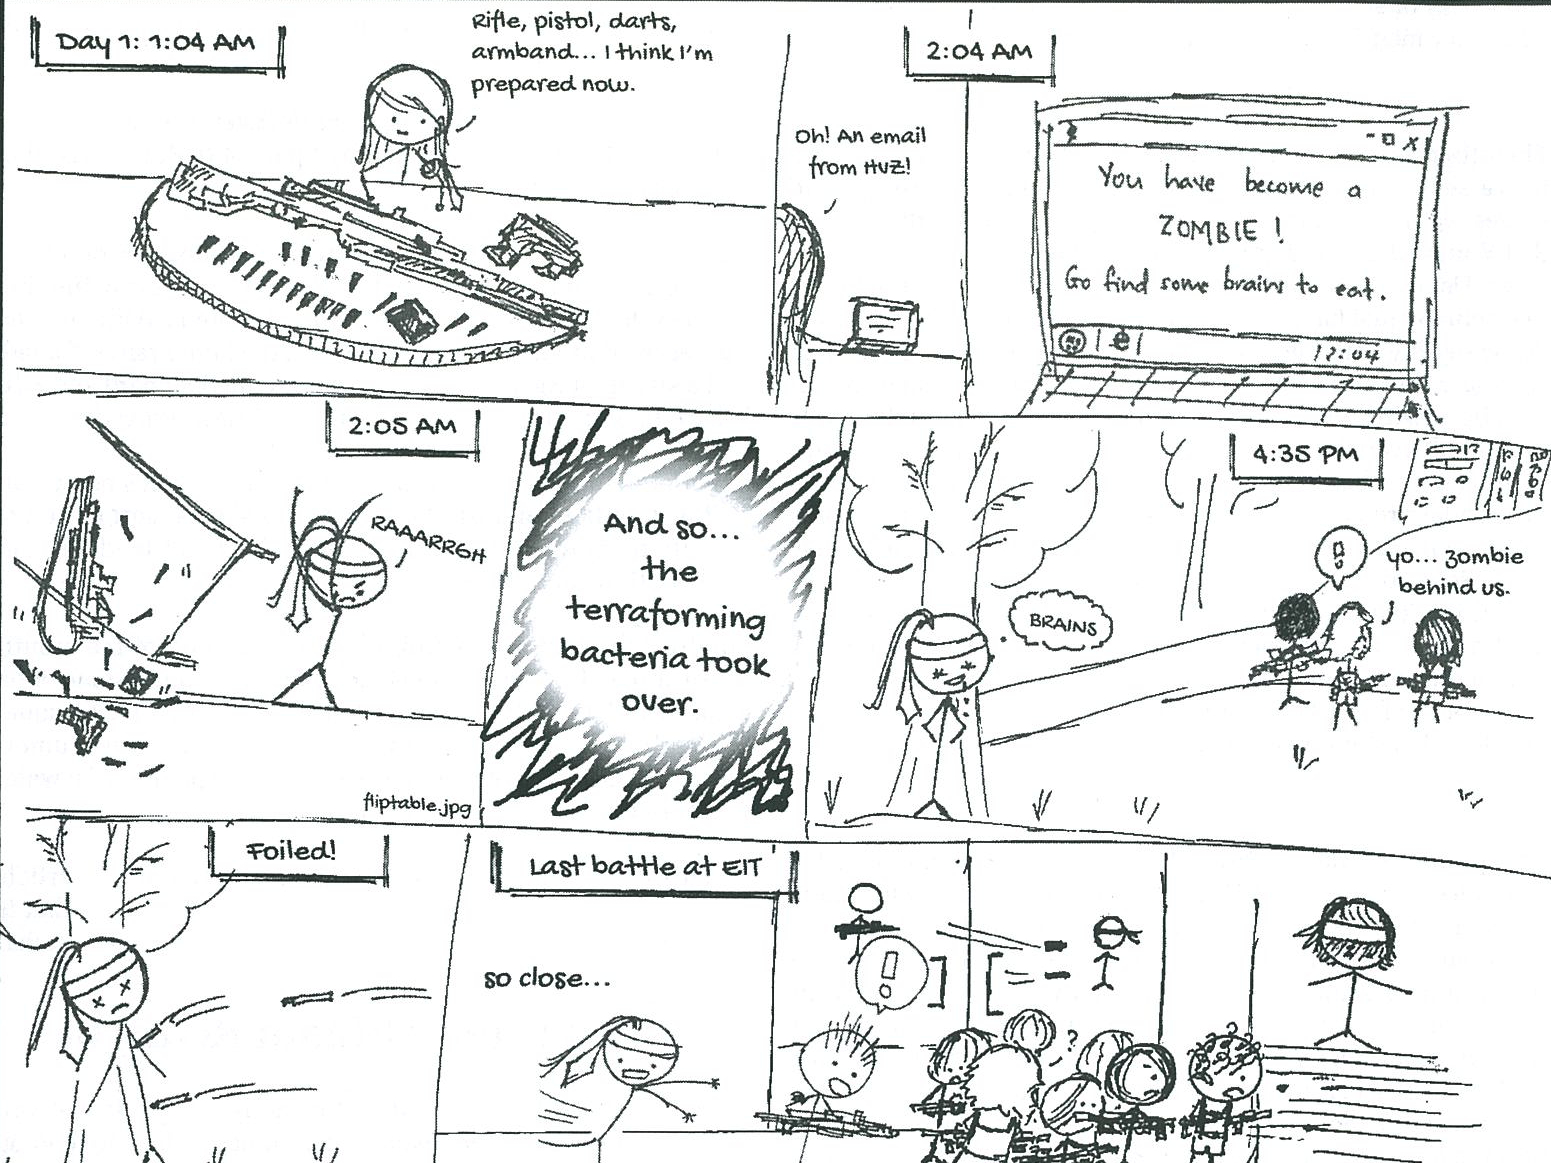 Day 1: 1:04 AM
Rifle, pistol, darts,
armband... I think I'm
prepared now.
2:04 AM
Oh! An email
from HvZ!
You have become a
ZOMBIE!
Go find some brains to eat.
2:05 AM
RAAARRGH
fliptable.jpg
And so...
the
terraforming
bacteria took
over.
4:35 PM
BRAINS
yo... zombie
behind us.
Foiled!
Last battle at EIT
so close...
!
?